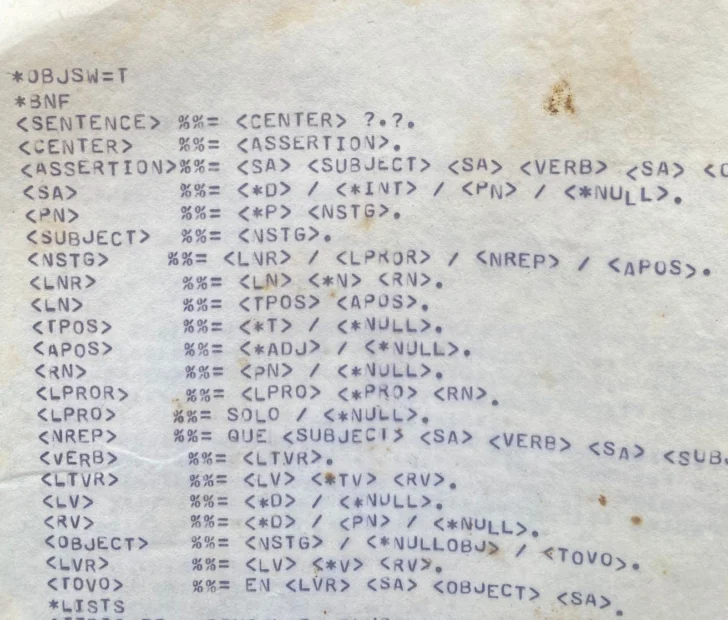 *OBJSW=T
*BNF
<SENTENCE> %%= <CENTER> ?.?.
<CENTER> %%= <ASSERTION>.
<ASSERTION>%%= <SA> <SUBJECT> <SA> <VERB> <SA>
<SA> %%= <*D> / <*INT> / <PN> / <*NULL>.
<PN> %%= <*P> <NSTG>.
<SUBJECT> %%= <NSTG>.
<NSTG> %%= <LNR> / <LPROR> / <NREP> / <APOS>.
<LNR> %%= <LN> <*N> <RN>.
<LN> %%= <TPOS> <APOS>.
<TPOS> %%= <*T> / <*NULL>.
<APOS> %%= <*ADJ> / <*NULL>.
<RN> %%= <PN> / <*NULL>.
<LPROR> %%= <LPRO> <*PRO> <RN>.
<LPRO> %%= SOLO / <*NULL>.
<NREP> %%= QUE <SUBJECT> <SA> <VERB> <SA> <SUBJ
<VERB> %%= <LTVR>.
<LTVR> %%= <LV> <*TV> <RV>.
<LV> %%= <*D> / <*NULL>.
<RV> %%= <*D> / <PN> / <*NULL>.
<OBJECT> %%= <NSTG> / <*NULLOBJ> / <TOVO>.
<LVR> %%= <LV> <*V> <RV>.
<TOVO> %%= EN <LVR> <SA> <OBJECT> <SA>.
*LISTS